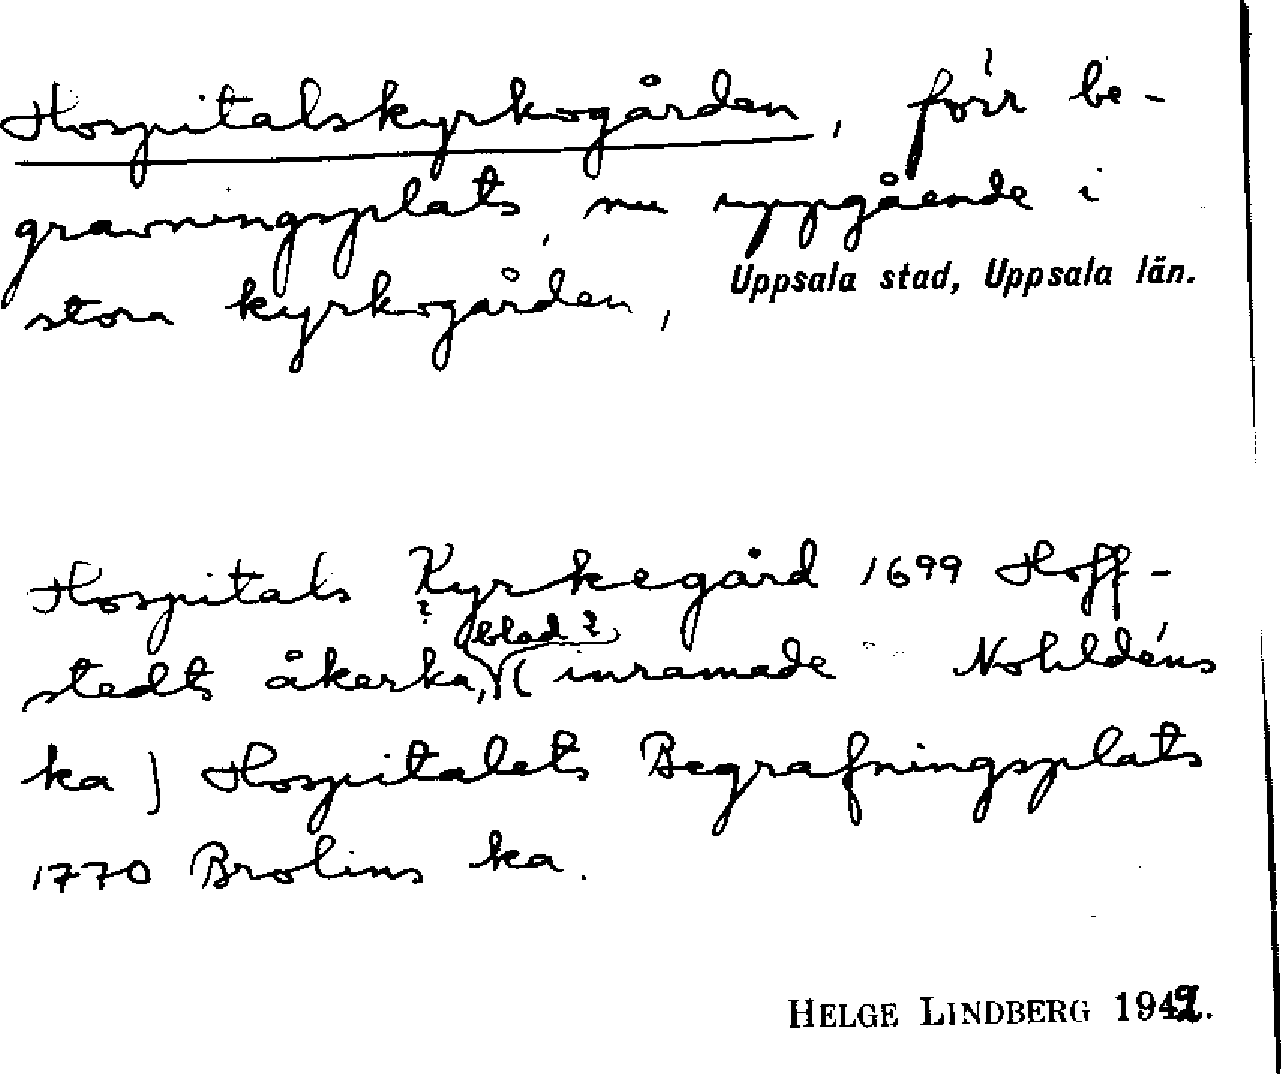 Hospitalskyrkogården, förr be-
gravningsplats, nu uppgående i
stora kyrkogården,
Uppsala stad, Uppsala län.
Hospitals Kyrkegård 1699 Hoff-
blad?
stedts åkerka, ( inramade Nohldéns
ka ) Hospitalets Begrafningsplats
1770 Brolins ka.
HELGE LINDBERG 1942.